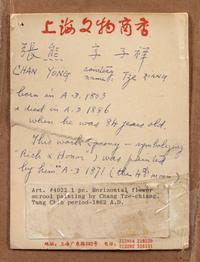 上海文物商店
張熊 字子祥
CHAN YONG courtesy name: Tze XIANG
born in A.D. 1803
& died in A.D. 1886
when he was 84 years old.
This work (peony – symbolizing
"Rich & Honor") was painted
by him A.D. 1871 (the 4th moon)
Art. #4022 1 pc. Horizontal flower
scrool painting by Chang Tze-chiang.
Tung Chih period-1862 A.D.
地址: 上海广东路